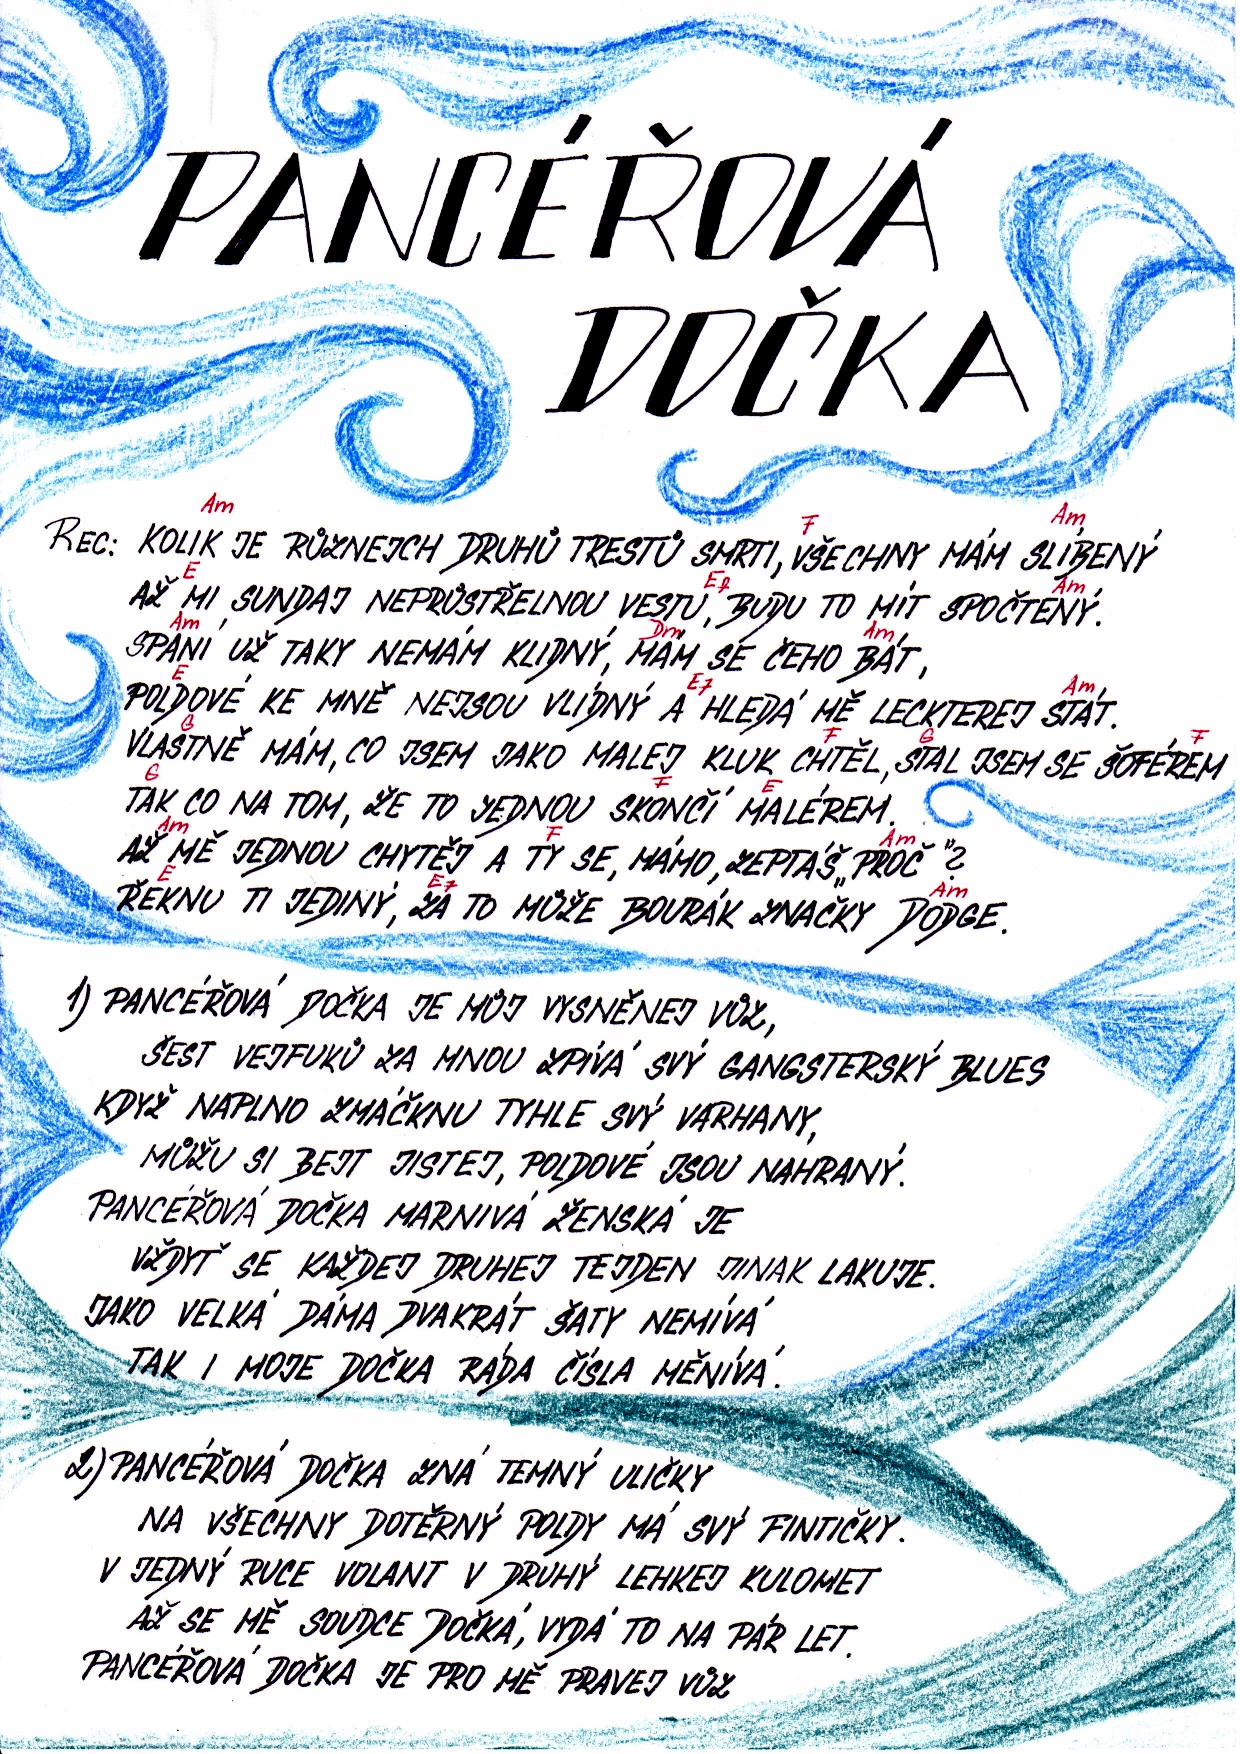 PANCÉŘOVÁ
DOČKA
Am F Am
REC: KOLIK JE RŮZNEJCH DRUHŮ TRESTŮ SMRTI, VŠECHNY MÁM SLÍBENÝ
E E7 Am
AŽ MI SUNDAJ NEPRŮSTŘELNOU VESTU, BUDU TO MÍT SPOČTENÝ.
Am Dm Am
SPANÍ UŽ TAKY NEMÁM KLIDNÝ, MÁM SE ČEHO BÁT,
E E7 Am
POLDOVÉ KE MNĚ NEJSOU VLÍDNÝ A HLEDÁ MĚ LECKTEREJ STÁT.
G F G F
VLASTNĚ MÁM, CO JSEM JAKO MALEJ KLUK CHTĚL, STAL JSEM SE ŠOFÉREM
G F E
TAK CO NA TOM, ŽE TO JEDNOU SKONČÍ MALÉREM.
Am F Am
AŽ MĚ JEDNOU CHYTĚJ A TY SE, MÁMO, ZEPTÁŠ „PROČ"?
E E7 Am
ŘEKNU TI JEDINÝ, ZA TO MŮŽE BOURÁK ZNAČKY DODGE.
1) PANCÉŘOVÁ DOČKA JE MŮJ VYSNĚNEJ VŮZ,
ŠEST VEJFUKŮ ZA MNOU ZPÍVÁ SVÝ GANGSTERSKÝ BLUES
KDYŽ NAPLNO ZMÁČKNU TYHLE SVÝ VARHANY,
MŮŽU SI BEJT JISTEJ, POLDOVÉ JSOU NAHRANÝ.
PANCÉŘOVÁ DOČKA MARNIVÁ ŽENSKÁ JE
VŽDYŤ SE KAŽDEJ DRUHEJ TEJDEN JINAK LAKUJE.
JAKO VELKÁ DÁMA DVAKRÁT ŠATY NEMÍVÁ
TAK I MOJE DOČKA RÁDA ČÍSLA MĚNÍVÁ.
2) PANCÉŘOVÁ DOČKA ZNÁ TEMNÝ ULIČKY
NA VŠECHNY DOTĚRNÝ POLDY MÁ SVÝ FINTIČKY.
V JEDNÝ RUCE VOLANT V DRUHÝ LEHKEJ KULOMET
AŽ SE MĚ SOUDCE DOČKÁ, VYDÁ TO NA PÁR LET.
PANCÉŘOVÁ DOČKA JE PRO MĚ PRAVEJ VŮZ